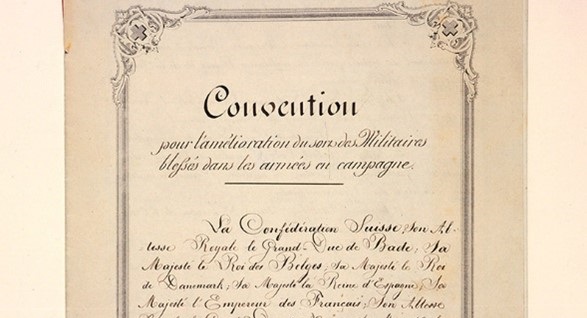 Convention
pour l'amélioration du sort des Militaires
blessés dans les armées en campagne.
La Confédération Suisse; Son Al-
tesse Royale le Grand-Duc de Bade; Sa
Majesté le Roi des Belges; Sa Majesté le Roi
de Danemark; Sa Majesté la Reine d'Espagne; Sa
Majesté l'Empereur des Français; Son Altesse